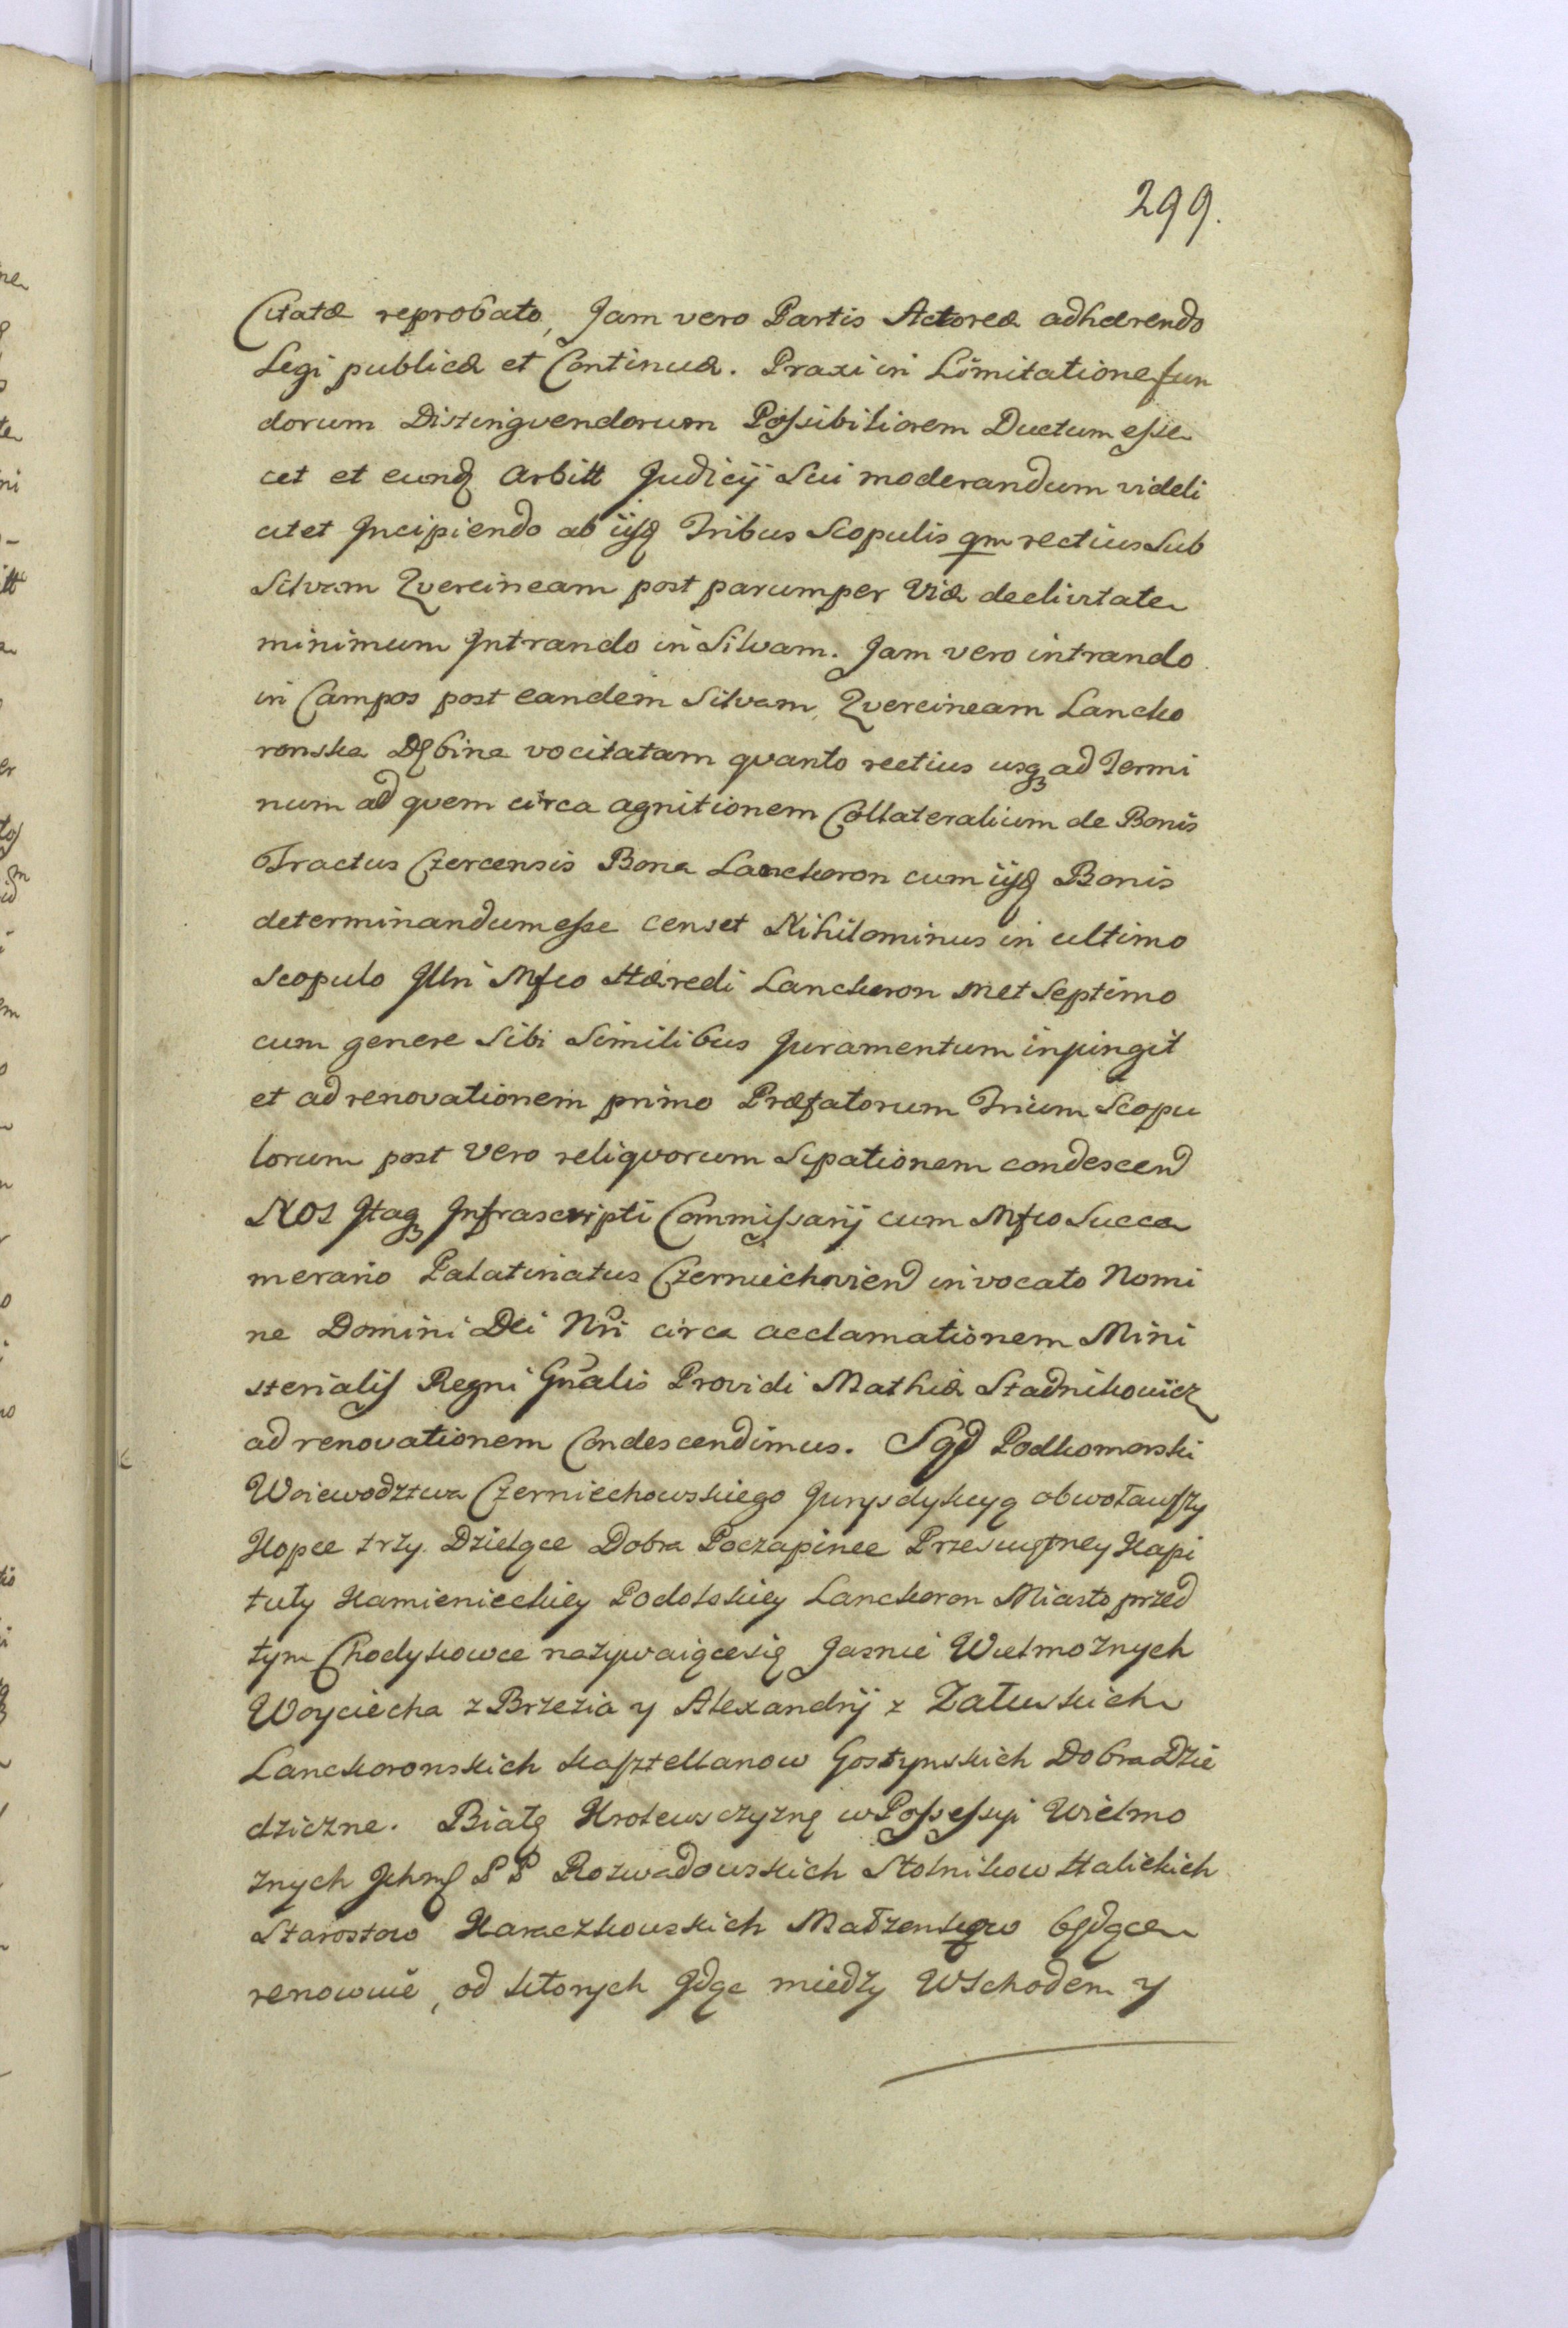 299.
Citatæ reprobato, Jam vero Partis Actoreæ adhærendo
Legi publicæ et Continuæ. Praxi in Limitatione fun
dorum Distingvendorum Possibiliorem Ductum esse
cet et eund Arbitt Judicÿ Sui moderandum videli
citet Incipiendo ab ijsd Tribus Scopulis qm rectius Sub
Silvam Qvercineam post parumper Viæ declivitate
minimum Intrando in Silvam. Jam vero intrando
in Campos post eandem Silvam Qvercineam Lancko
ronska Dębina vocitatam qvanto rectius usq ad Termi
num ad qvem circa agnitionem Collateralium de Bonis
Tractus Czercensis Bona Lanckoron cum ijsd Bonis
determinandum esse censet Nihilominus in ultimo
scopulo Illri Mfco Hæredi Lanckoron Met Septimo
cum genere Sibi Similibus Juramentum inpingit
et ad renovationem primo Præfatorum Trium Scopu
lorum post Vero reliqvorum Sipationem condescend
NOS Itaq Infrascripti Commissarij cum Mfco Succa
merario Palatinatus Czerniechoviens invocato Nomi
ne Domini Dei Nri circa acclamationem Mini
sterialis Regni Gnalis Providi Mathiæ Stadnikowicz
ad renovationem Condescendimus. Sąd Podkomorski
Woiewodztwa Czerniechowskiego Jurysdykcyą obwoławszy
Kopce trzy Dzielące Dobra Poczapince Przeświętney Kapi
tuły Kamienieckiey Podolskiey Lanckoron Miasto przed
tym Chodykowce nazywaiącesię Jasnie Wielmoznych
Woyciecha z Brzezia y Alexandrÿ z Załuskich
Lanckoronskich Kasztellanow Gostynskich Dobra Dzie
dziczne. Białą Krolewsczyznę w Possessyi Wielmo
znych Jchmś PP Rozwadowskich Stolnikow Halickich
Starostow Karaczkowskich Małzenkow będące
renowuie, od ktorych Idąc miedzy Wschodem y